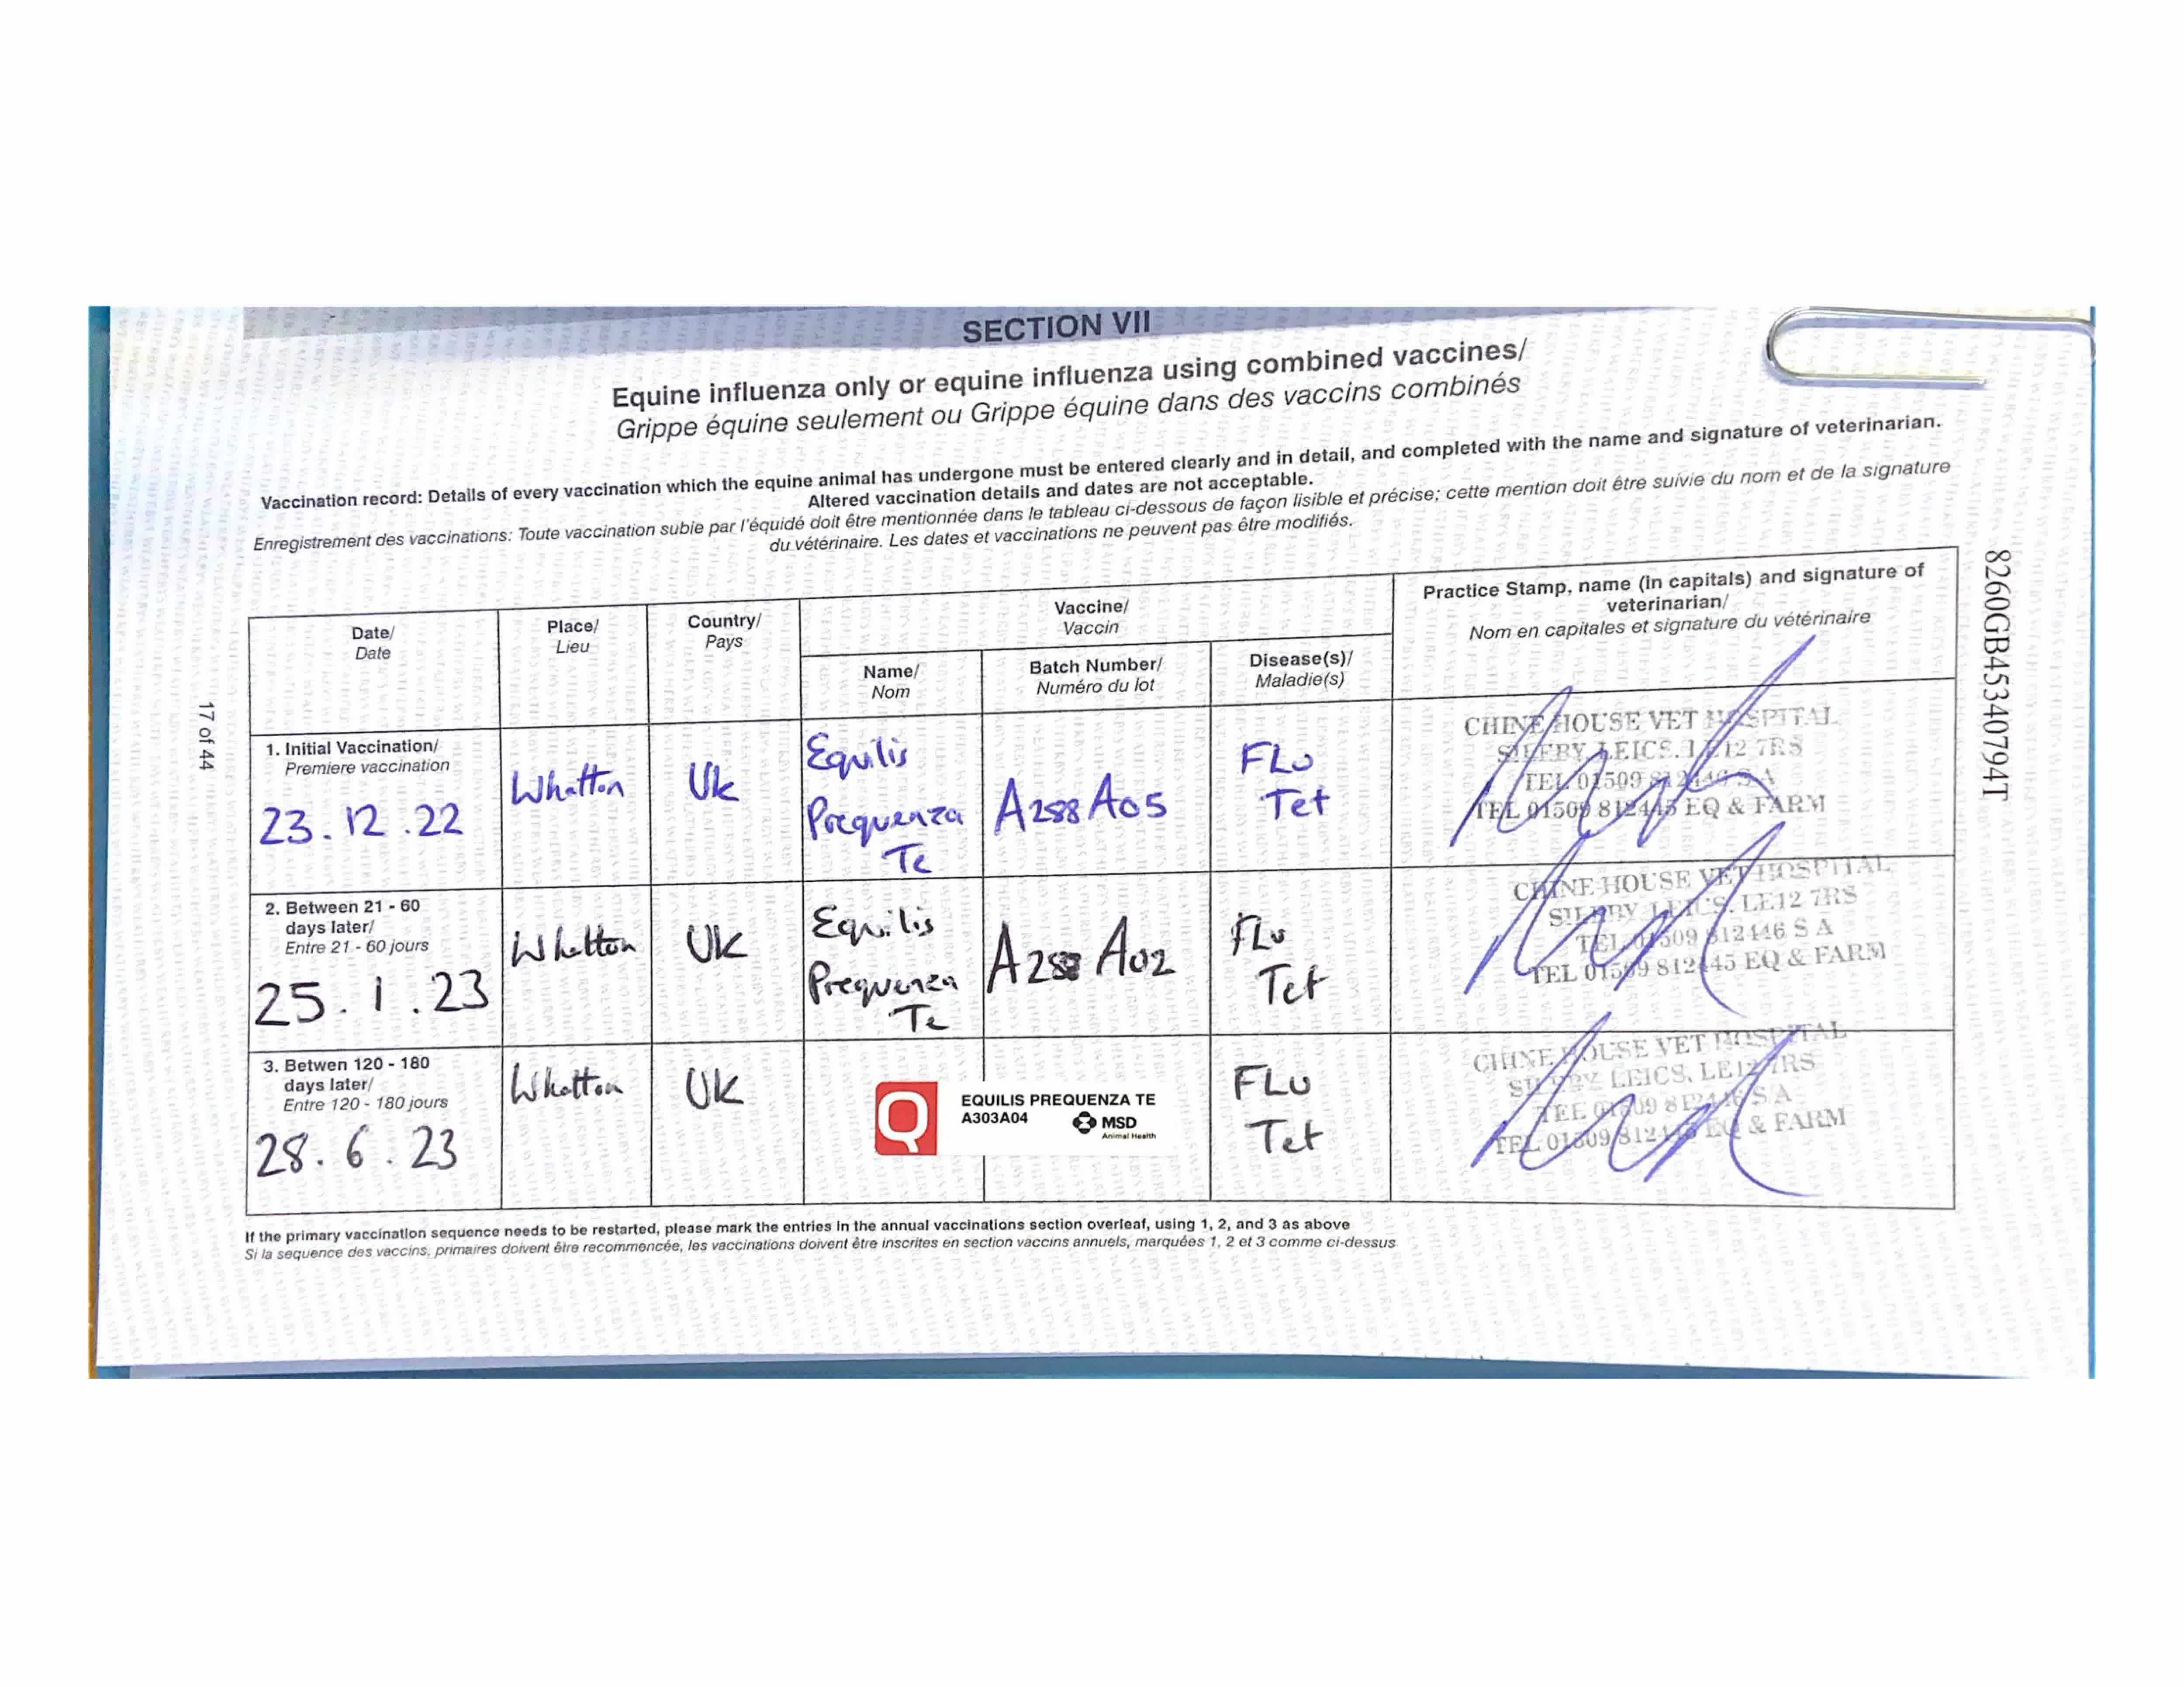 SECTION VII
Equine influenza only or equine influenza using combined vaccines/
Grippe équine seulement ou Grippe équine dans des vaccins combinés
Vaccination record: Details of every vaccination which the equine animal has undergone must be entered clearly and in detail, and completed with the name and signature of veterinarian.
Altered vaccination details and dates are not acceptable.
Enregistrement des vaccinations: Toute vaccination subie par l'équidé doit être mentionnée dans le tableau ci-dessous de façon lisible et précise; cette mention doit être suivie du nom et de la signature
du vétérinaire. Les dates et vaccinations ne peuvent pas être modifiés.
Date/
Date
Place/
Lieu
Country/
Pays
Vaccine/
Vaccin
Name/
Nom
Batch Number/
Numéro du lot
Disease(s)/
Maladie(s)
Practice Stamp, name (in capitals) and signature of
veterinarian/
Nom en capitales et signature du vétérinaire
1. Initial Vaccination/
Premiere vaccination
23.12.22
Whatton
Uk
Equilis
Prequenza
Te
A288 A05
FLu
Tet
CHINE HOUSE VET HOSPITAL
SILEBY, LEICS. LE12 7RS
TEL 01509 812446 S A
TEL 01509 812445 EQ & FARM
2. Between 21 - 60
days later/
Entre 21 - 60 jours
25.1.23
Whatton
UK
Equilis
Prequenza
Te
A02
FLu
Tet
CHINE HOUSE VET HOSPITAL
SILEBY, LEICS. LE12 7RS
TEL 01509 812446 S A
TEL 01509 812445 EQ & FARM
3. Betwen 120 - 180
days later/
Entre 120 - 180 jours
28.6.23
Whatton
UK
Q
EQUILIS PREQUENZA TE
A303A04
MSD
Animal Health
FLu
Tet
CHINE HOUSE VET HOSPITAL
SILEBY, LEICS, LE12 7RS
TEL 01509 812446 S A
TEL 01509 812445 EQ & FARM
If the primary vaccination sequence needs to be restarted, please mark the entries in the annual vaccinations section overleaf, using 1, 2, and 3 as above
Si la sequence des vaccins, primaires doivent être recommencée, les vaccinations doivent être inscrites en section vaccins annuels, marquées 1, 2 et 3 comme ci-dessus
17 of 44
8260GB45340794T